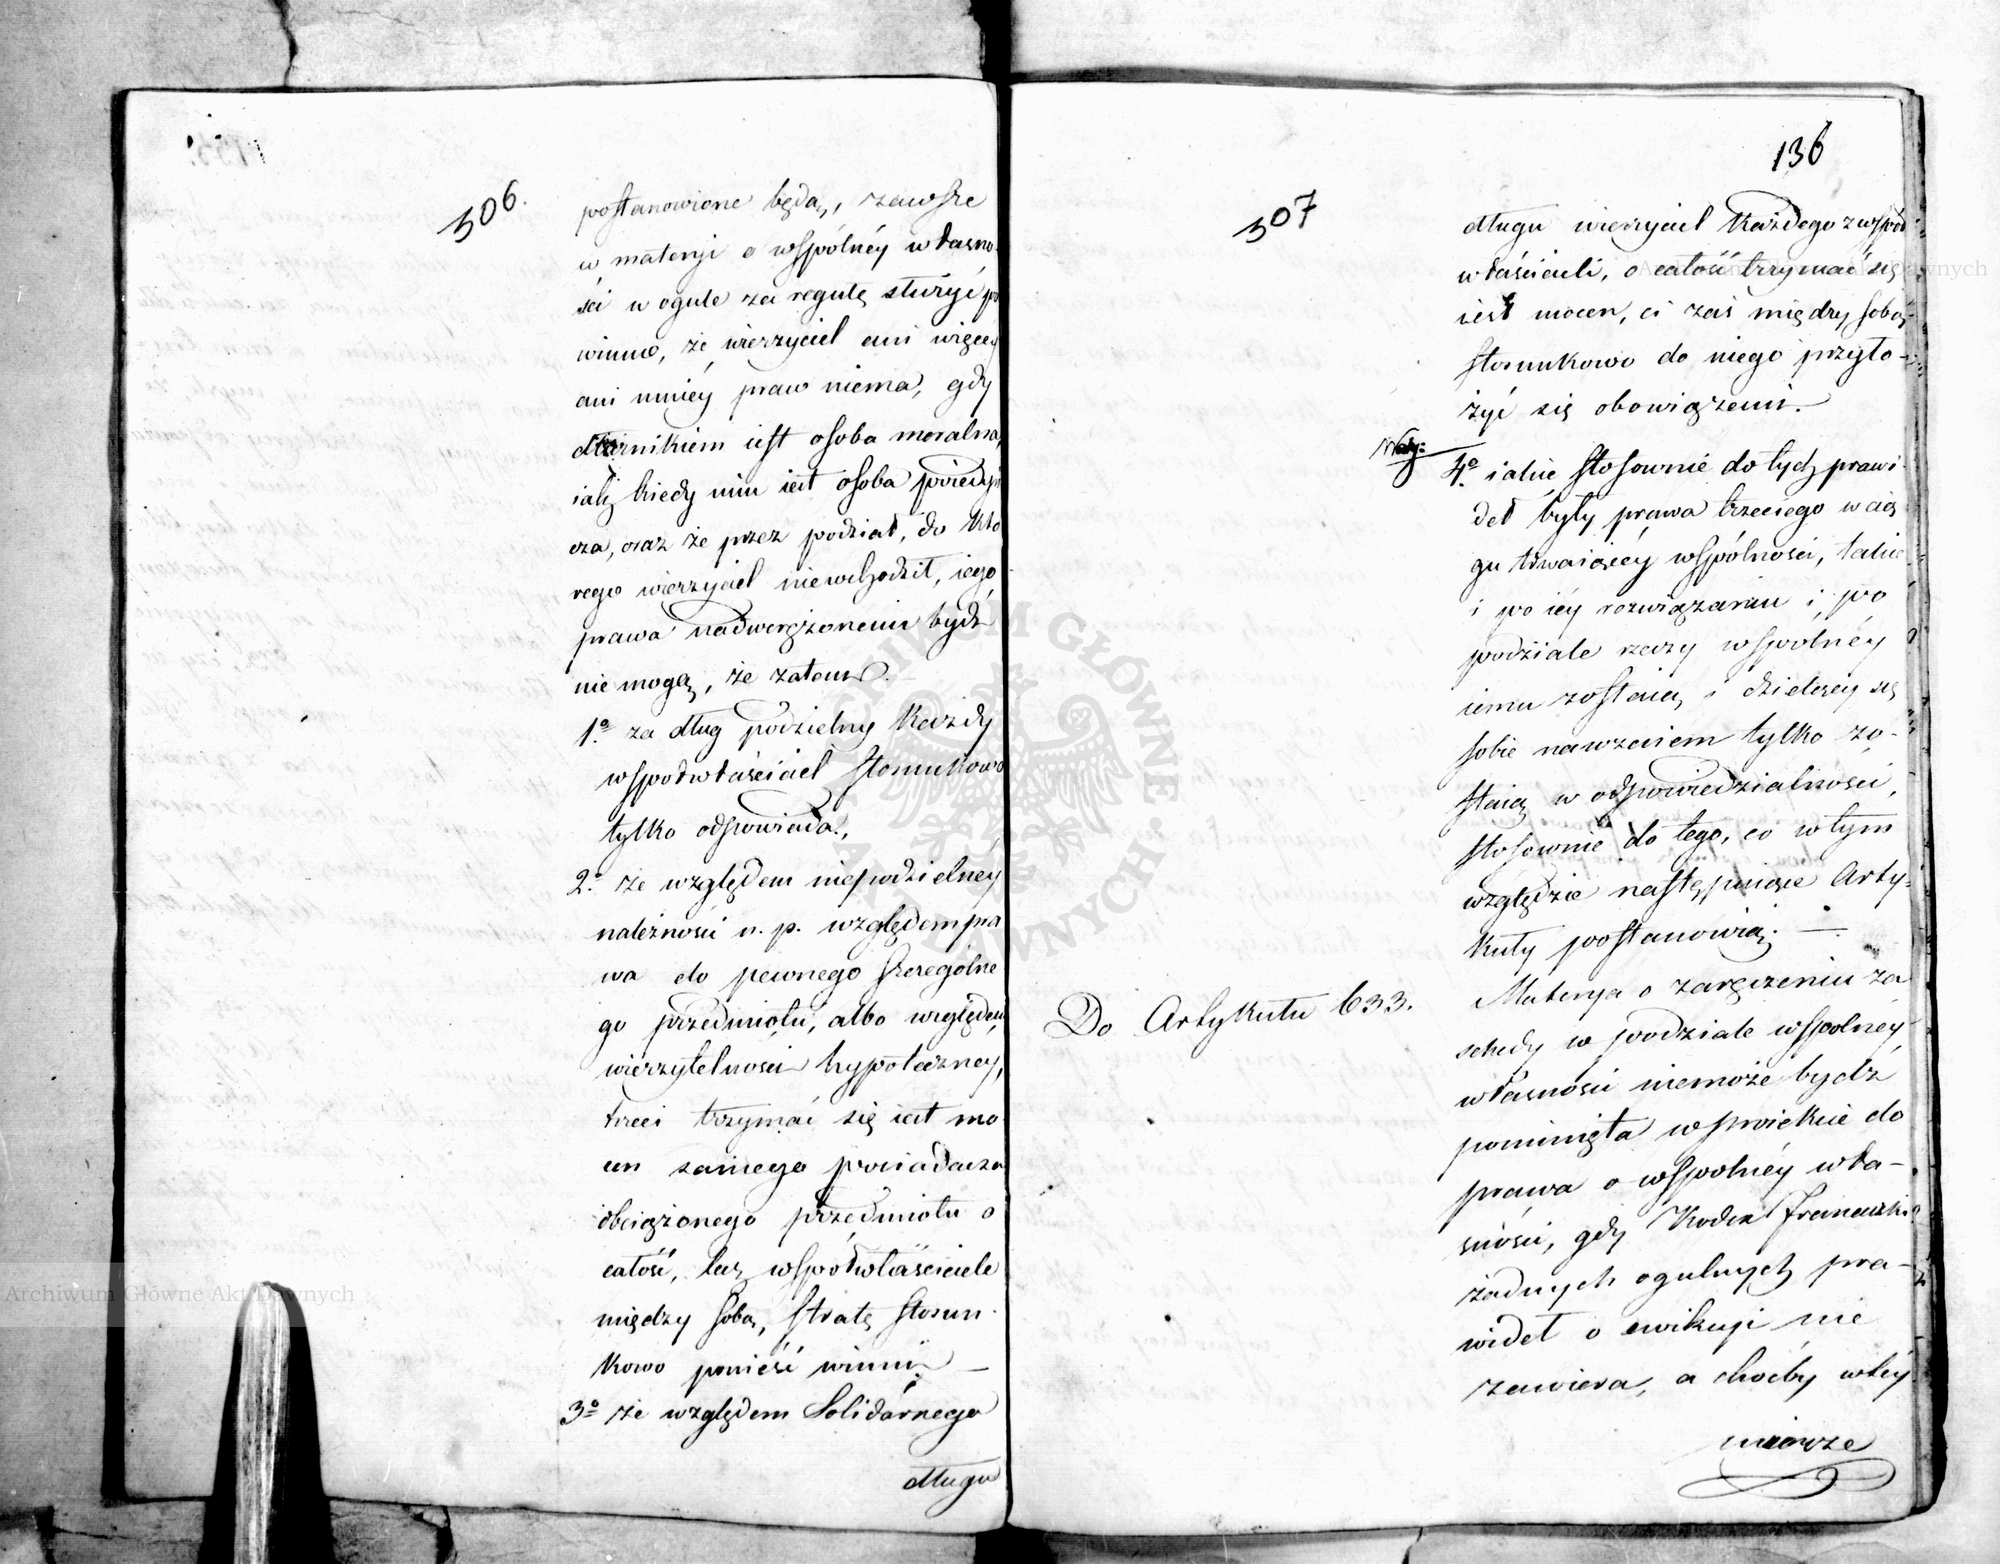 506.
postanowione będą, zawsze
w materyi o wspólnéy własno-
ści w ogule za regułę służyć po
winno, że wierzyciel ani więcey
ani mniéy praw niema, gdy
dłużnikiem iest osoba moralna,
iak kiedy nim iest osoba poiedyń
cza, oraz że przez podział, do któ
rego wierzyciel niewchodził, iego
prawa nadwerężonemi bydź
nie mogą, że zatem.
1º za dług podzielny każdy
wspołwłaściciel stosunkowo
tylko odpowiada,
2º że względem niepodzielnéy
należności n. p. względem pra
wa do pewnego szczególne
go przedmiotu, albo względem
wierzytelności hypoteczney,
trzeci trzymać się iest mo
cen samego posiadacza
obciążonego przedmiotu o
całość, lecz wspołwłaściciele
między sobą, stratę stosun-
kowo ponieść winni
3º że względem Solidarnego
długu
136
507
długu wierzyciel każdego z współ
właścicieli, o całość trzymać się
iest mocen, ci zaś między sobą
stosunkowo do niego przyło-
żyć się obowiązani.
4º iakie stosownie do tych prawi-
deł były prawa trzeciego w cią
gu trwaiącéy wspólności, takie
i po iéy rozwiązaniu i po
podziale rzeczy wspólnéy
iemu zostaią, i dzielący się
sobie nawzaiem tylko zo-
staią w odpowiedzialności,
stosownie do tego, co w tym
względzie następuiące Arty-
kuły postanowią. —
Do Artykułu 633.
Materya o zaręczeniu za
schedy w podziale wspólnéy
własności niemoże bydź
pominięta w proiekcie do
prawa o wspólnéy wła-
sności, gdy Kodex Francuzki
żadnych ogulnych pra-
wideł o ewikcyi nie
zawiera, a choćby w téy
mierze
Archiwum Główne Akt Dawnych
Archiwum Główne Akt Dawnych
ARCHIWUM GŁÓWNE AKT DAWNYCH